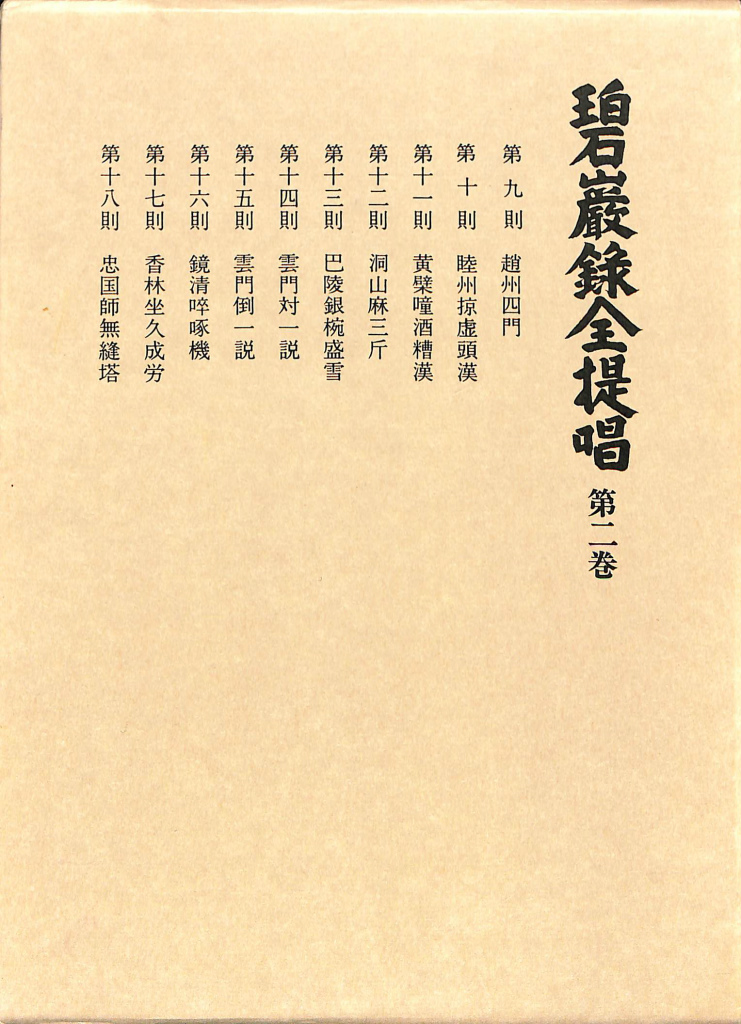 碧巌錄全提唱 第二巻
第九則 趙州四門
第十則 睦州掠虚頭漢
第十一則 黄檗噇酒糟漢
第十二則 洞山麻三斤
第十三則 巴陵銀椀盛雪
第十四則 雲門対一説
第十五則 雲門倒一説
第十六則 鏡清啐啄機
第十七則 香林坐久成労
第十八則 忠国師無縫塔